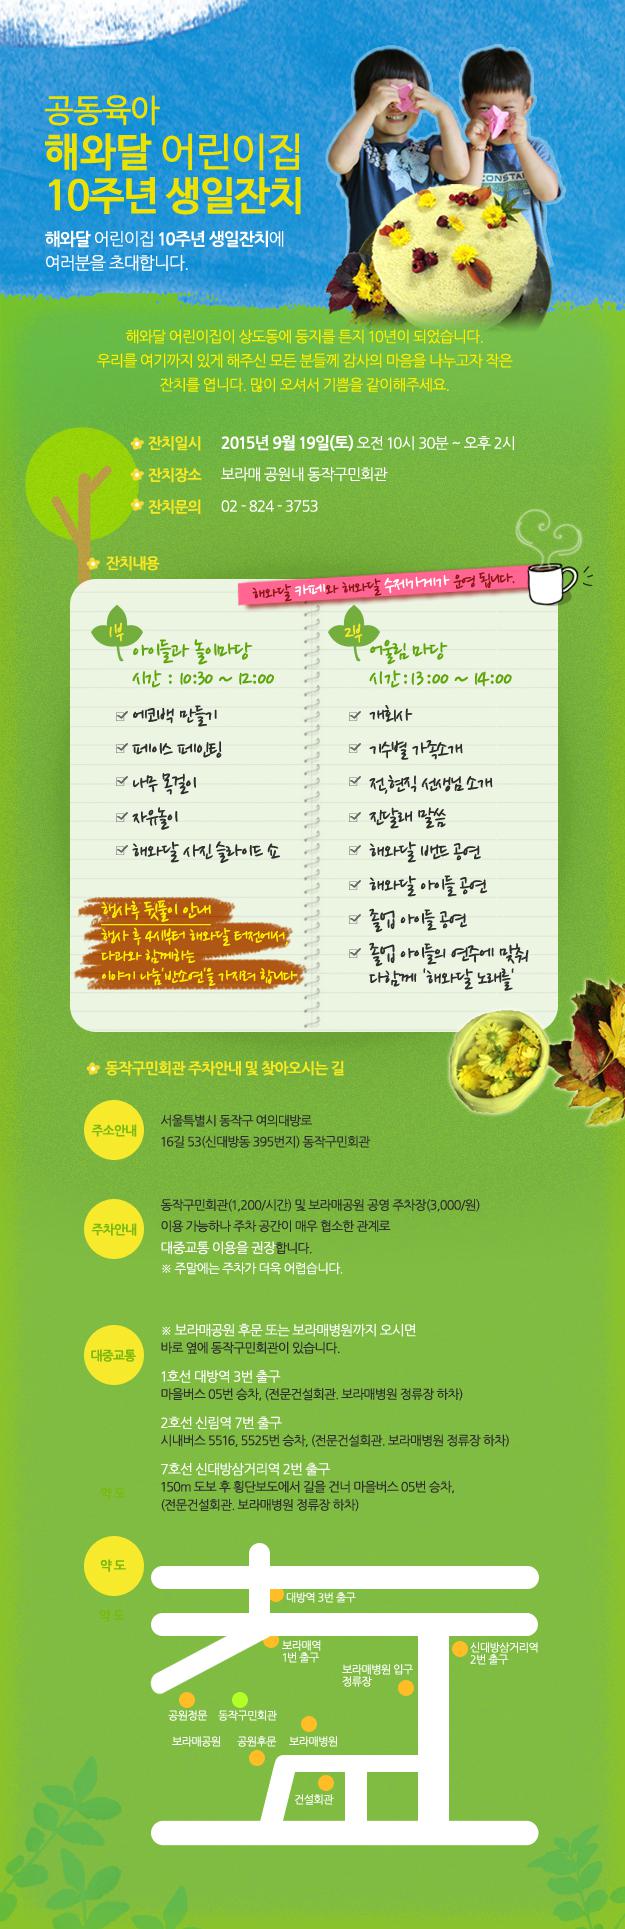 공동육아
해와달 어린이집
10주년 생일잔치
해와달 어린이집 10주년 생일잔치에
여러분을 초대합니다.
CONSTA
해와달 어린이집이 상도동에 둥지를 튼지 10년이 되었습니다.
우리를 여기까지 있게 해주신 모든 분들께 감사의 마음을 나누고자 작은
잔치를 엽니다. 많이 오셔서 기쁨을 같이해주세요.
잔치일시 2015년 9월 19일(토) 오전 10시 30분 ~ 오후 2시
잔치장소 보라매 공원내 동작구민회관
잔치문의 02 - 824 - 3753
잔치내용
해와달 카페와 해와달 수제가게가 운영 됩니다.
1부
아이들과 놀이마당
시간 : 10:30 ~ 12:00
에코백 만들기
페이스 페인팅
나무 목걸이
자유놀이
해와달 사진 슬라이드 쇼
행사후 뒷풀이 안내
행사 후 4시부터 해와달 터전에서,
다과와 함께하는
이야기 나눔'반소연'을 가지려 합니다.
2부
어울림 마당
시간 : 13:00 ~ 14:00
개회사
기수별 가족소개
전,현직 선생님 소개
진달래 말씀
해와달 밴드 공연
해와달 아이들 공연
졸업 아이들 공연
졸업 아이들의 연주에 맞춰
다함께 '해와달 노래를'
동작구민회관 주차안내 및 찾아오시는 길
주소안내
서울특별시 동작구 여의대방로
16길 53(신대방동 395번지) 동작구민회관
주차안내
동작구민회관(1,200/시간) 및 보라매공원 공영 주차장(3,000/원)
이용 가능하나 주차 공간이 매우 협소한 관계로
대중교통 이용을 권장합니다.
※ 주말에는 주차가 더욱 어렵습니다.
대중교통
※ 보라매공원 후문 또는 보라매병원까지 오시면
바로 옆에 동작구민회관이 있습니다.
1호선 대방역 3번 출구
마을버스 05번 승차, (전문건설회관. 보라매병원 정류장 하차)
2호선 신림역 7번 출구
시내버스 5516, 5525번 승차, (전문건설회관. 보라매병원 정류장 하차)
7호선 신대방삼거리역 2번 출구
150m 도보 후 횡단보도에서 길을 건너 마을버스 05번 승차,
(전문건설회관. 보라매병원 정류장 하차)
약 도
약 도
약 도
대방역 3번 출구
보라매역
1번 출구
신대방삼거리역
2번 출구
보라매병원 입구
정류장
공원정문
동작구민회관
보라매공원
공원후문
보라매병원
건설회관